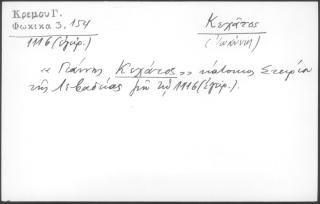 Κρεμου Γ.
Φωκικα 3, 154
1116 (Ἐγίρ.)
Κεχάτος
(Ἰωάννης)
« Γιάννης Κεχάτος » κάτοικος Στειρίου
τῆς Λεβαδείας μὲ τῷ 1116 (Ἐγίρ.).